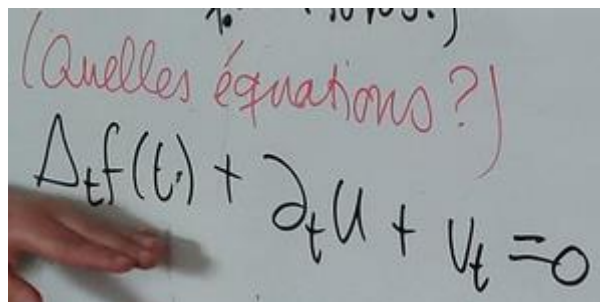 (Quelles équations?)
Δₜf(t.) + ∂ₜu + vₜ = 0